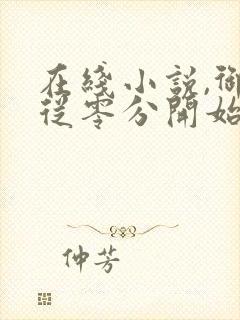 在綫小説,御
從零分開始
仲芳